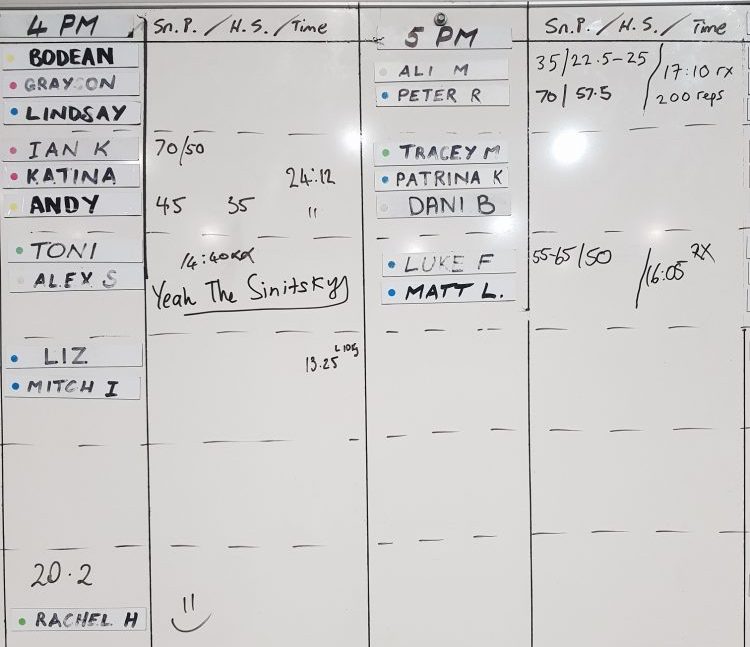 4 PM
Sn.P. / H.S. / Time
BODEAN
GRAYSON
LINDSAY
IAN K
70/50
KATINA
24:12
ANDY
45 35 "
TONI
14:40
ALEX S
Yeah The Sinitskys
LIZ
13.25
MITCH I
20.2
RACHEL H
5 PM
Sn.P. / H.S. / Time
ALI M
35/22.5-25 / 17:10 rx
PETER R
70 / 57.5 / 200 reps
TRACEY M
PATRINA K
DANI B
LUKE F
55-65/50 / 16:05 RX
MATT L.